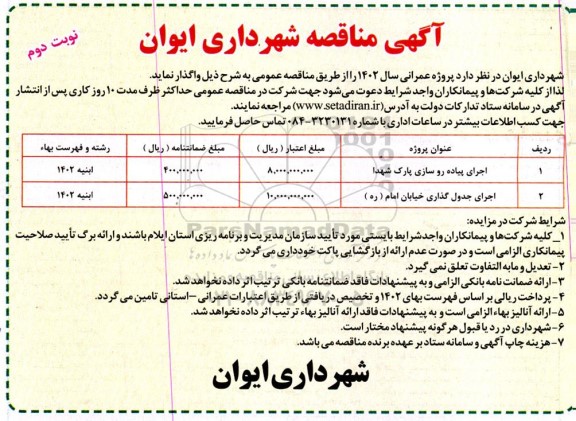 آگهی مناقصه شهرداری ایوان
نوبت دوم
شهرداری ایوان در نظر دارد پروژه عمرانی سال ۱۴۰۲ را از طریق مناقصه عمومی به شرح ذیل واگذار نماید.
لذا از کلیه شرکت‌ها و پیمانکاران واجد شرایط دعوت می‌شود جهت شرکت در مناقصه عمومی حداکثر ظرف مدت ۱۰ روز کاری پس از انتشار
آگهی در سامانه ستاد تدارکات دولت به آدرس (www.setadiran.ir) مراجعه نمایند.
جهت کسب اطلاعات بیشتر در ساعات اداری با شماره ۳۲۳۰۱۳۱-۰۸۴ تماس حاصل فرمایید.
ردیف عنوان پروژه مبلغ اعتبار ( ریال ) مبلغ ضمانتنامه ( ریال ) رشته و فهرست بهاء
۱ اجرای پیاده رو سازی پارک شهدا ۸,۰۰۰,۰۰۰,۰۰۰ ۴۰۰,۰۰۰,۰۰۰ ابنیه ۱۴۰۲
۲ اجرای جدول گذاری خیابان امام ( ره ) ۱۰,۰۰۰,۰۰۰,۰۰۰ ۵۰۰,۰۰۰,۰۰۰ ابنیه ۱۴۰۲
شرایط شرکت در مزایده:
۱_ کلیه شرکت‌ها و پیمانکاران واجد شرایط بایستی مورد تأیید سازمان مدیریت و برنامه ریزی استان ایلام باشند و ارائه برگ تأیید صلاحیت
پیمانکاری الزامی است و در صورت عدم ارائه از بازگشایی پاکت خودداری می گردد.
۲- تعدیل و مابه التفاوت تعلق نمی گیرد.
۳- ارائه ضمانت نامه بانکی الزامی و به پیشنهادات فاقد ضمانتنامه بانکی ترتیب اثر داده نخواهد شد.
۴- پرداخت ریالی بر اساس فهرست بهای ۱۴۰۲ و تخصیص دریافتی از طریق اعتبارات عمرانی – استانی تامین می گردد.
۵- ارائه آنالیز بهاء الزامی است و به پیشنهادات فاقد ارائه آنالیز بهاء ترتیب اثر داده نخواهد شد.
۶- شهرداری در رد یا قبول هرگونه پیشنهاد مختار است.
۷- هزینه چاپ آگهی و سامانه ستاد بر عهده برنده مناقصه می باشد.
شهرداری ایوان
ParsNamadData